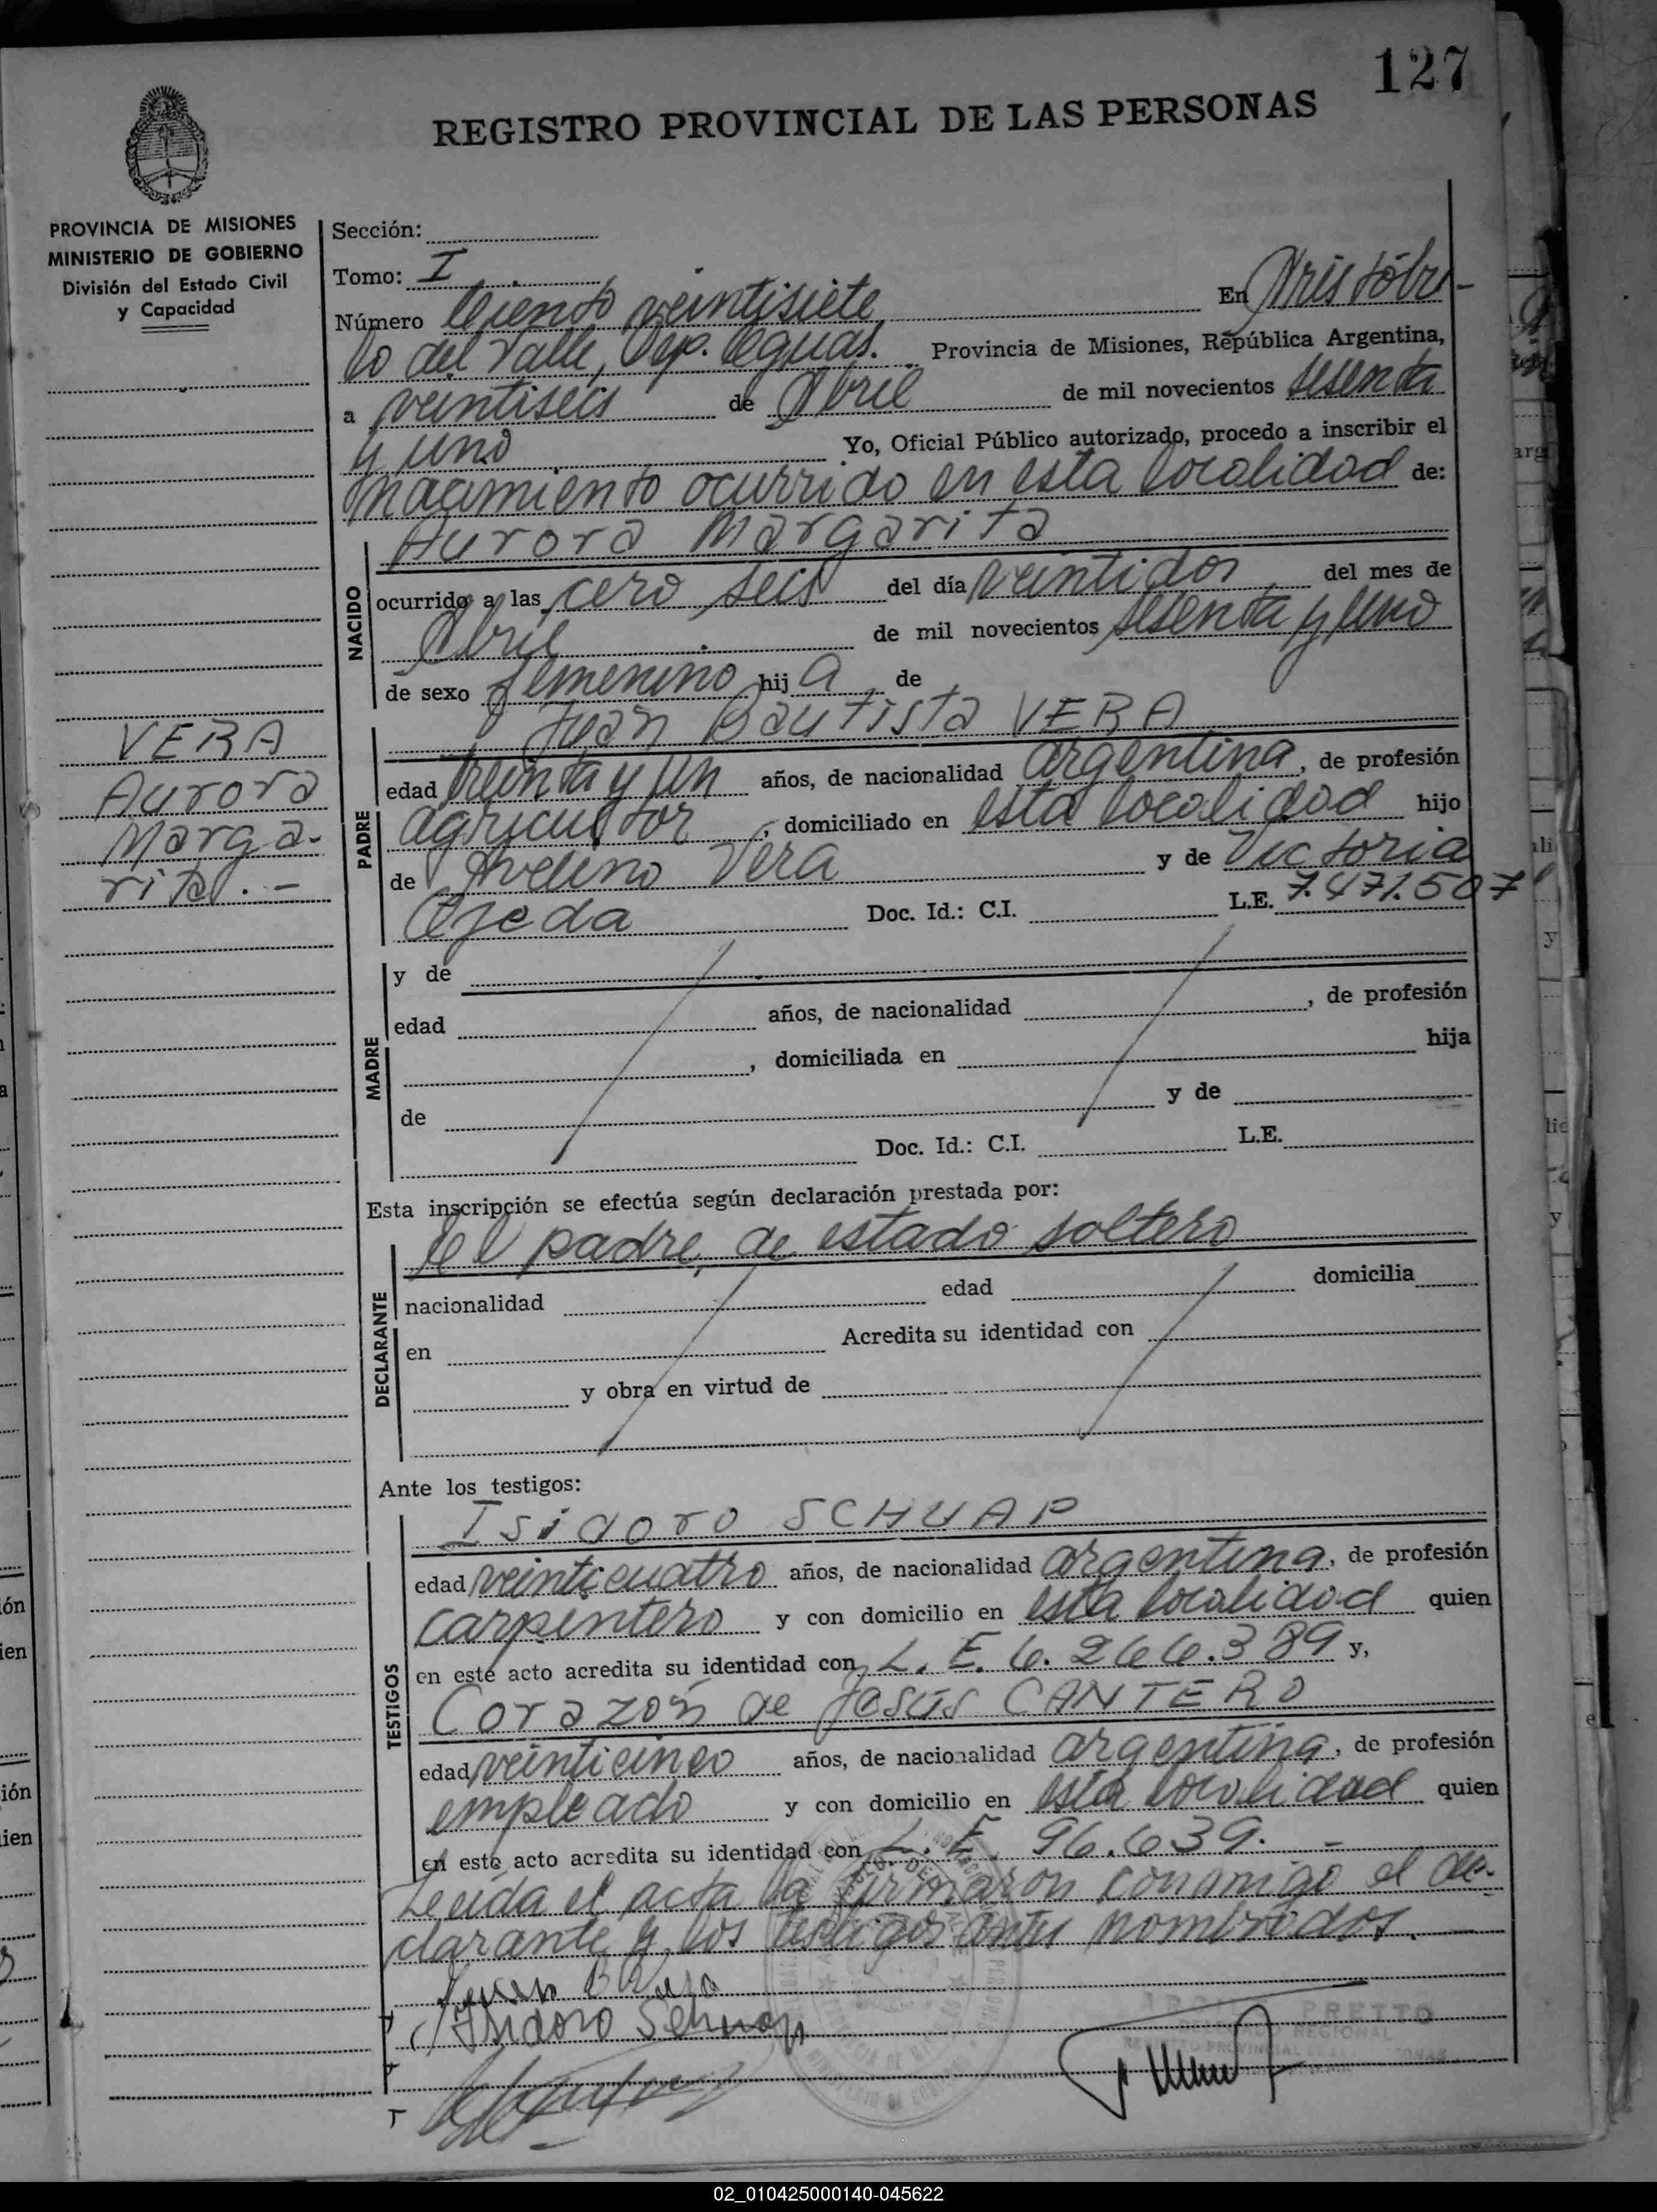 127
REGISTRO PROVINCIAL DE LAS PERSONAS
PROVINCIA DE MISIONES
MINISTERIO DE GOBIERNO
División del Estado Civil
y Capacidad
Sección:
Tomo: I
Número Ciento veintisiete En Aristóbu-
lo del Valle, Dep. Cguas. Provincia de Misiones, República Argentina,
a veintiseis de Abril de mil novecientos sesenta
y uno Yo, Oficial Público autorizado, procedo a inscribir el
nacimiento ocurrido en esta localidad de:
Aurora Margarita
NACIDO
ocurrido a las cero seis del día veintidos del mes de
Abril de mil novecientos sesenta y uno
de sexo femenino hij a de
Juan Bautista VERA
VERA
Aurora
Marga-
rita.-
PADRE
edad treinta y un años, de nacionalidad argentina, de profesión
agricultor, domiciliado en esta localidad hijo
de Avelino Vera y de Victoria
Ojeda Doc. Id.: C.I. L.E. 7.471.507
MADRE
y de
edad años, de nacionalidad , de profesión
, domiciliada en hija
de y de
Doc. Id.: C.I. L.E.
Esta inscripción se efectúa según declaración prestada por:
el padre, de estado soltero
DECLARANTE
nacionalidad edad domicilia
en Acredita su identidad con
y obra en virtud de
Ante los testigos:
Isidoro SCHUAP
TESTIGOS
edad veinticuatro años, de nacionalidad argentina, de profesión
carpintero y con domicilio en esta localidad quien
en este acto acredita su identidad con L.E. 6.266.389 y,
Corazón de Jesús CANTERO
edad veinticinco años, de nacionalidad argentina, de profesión
empleado y con domicilio en esta localidad quien
en este acto acredita su identidad con L.E. 96.639.-
Leída el acta la firmaron conmigo el de-
clarante y los testigos antes nombrados.-
Juan B Vera
Isidoro Schuap
PRETTO
DELEGADO REGIONAL
02_010425000140-045622